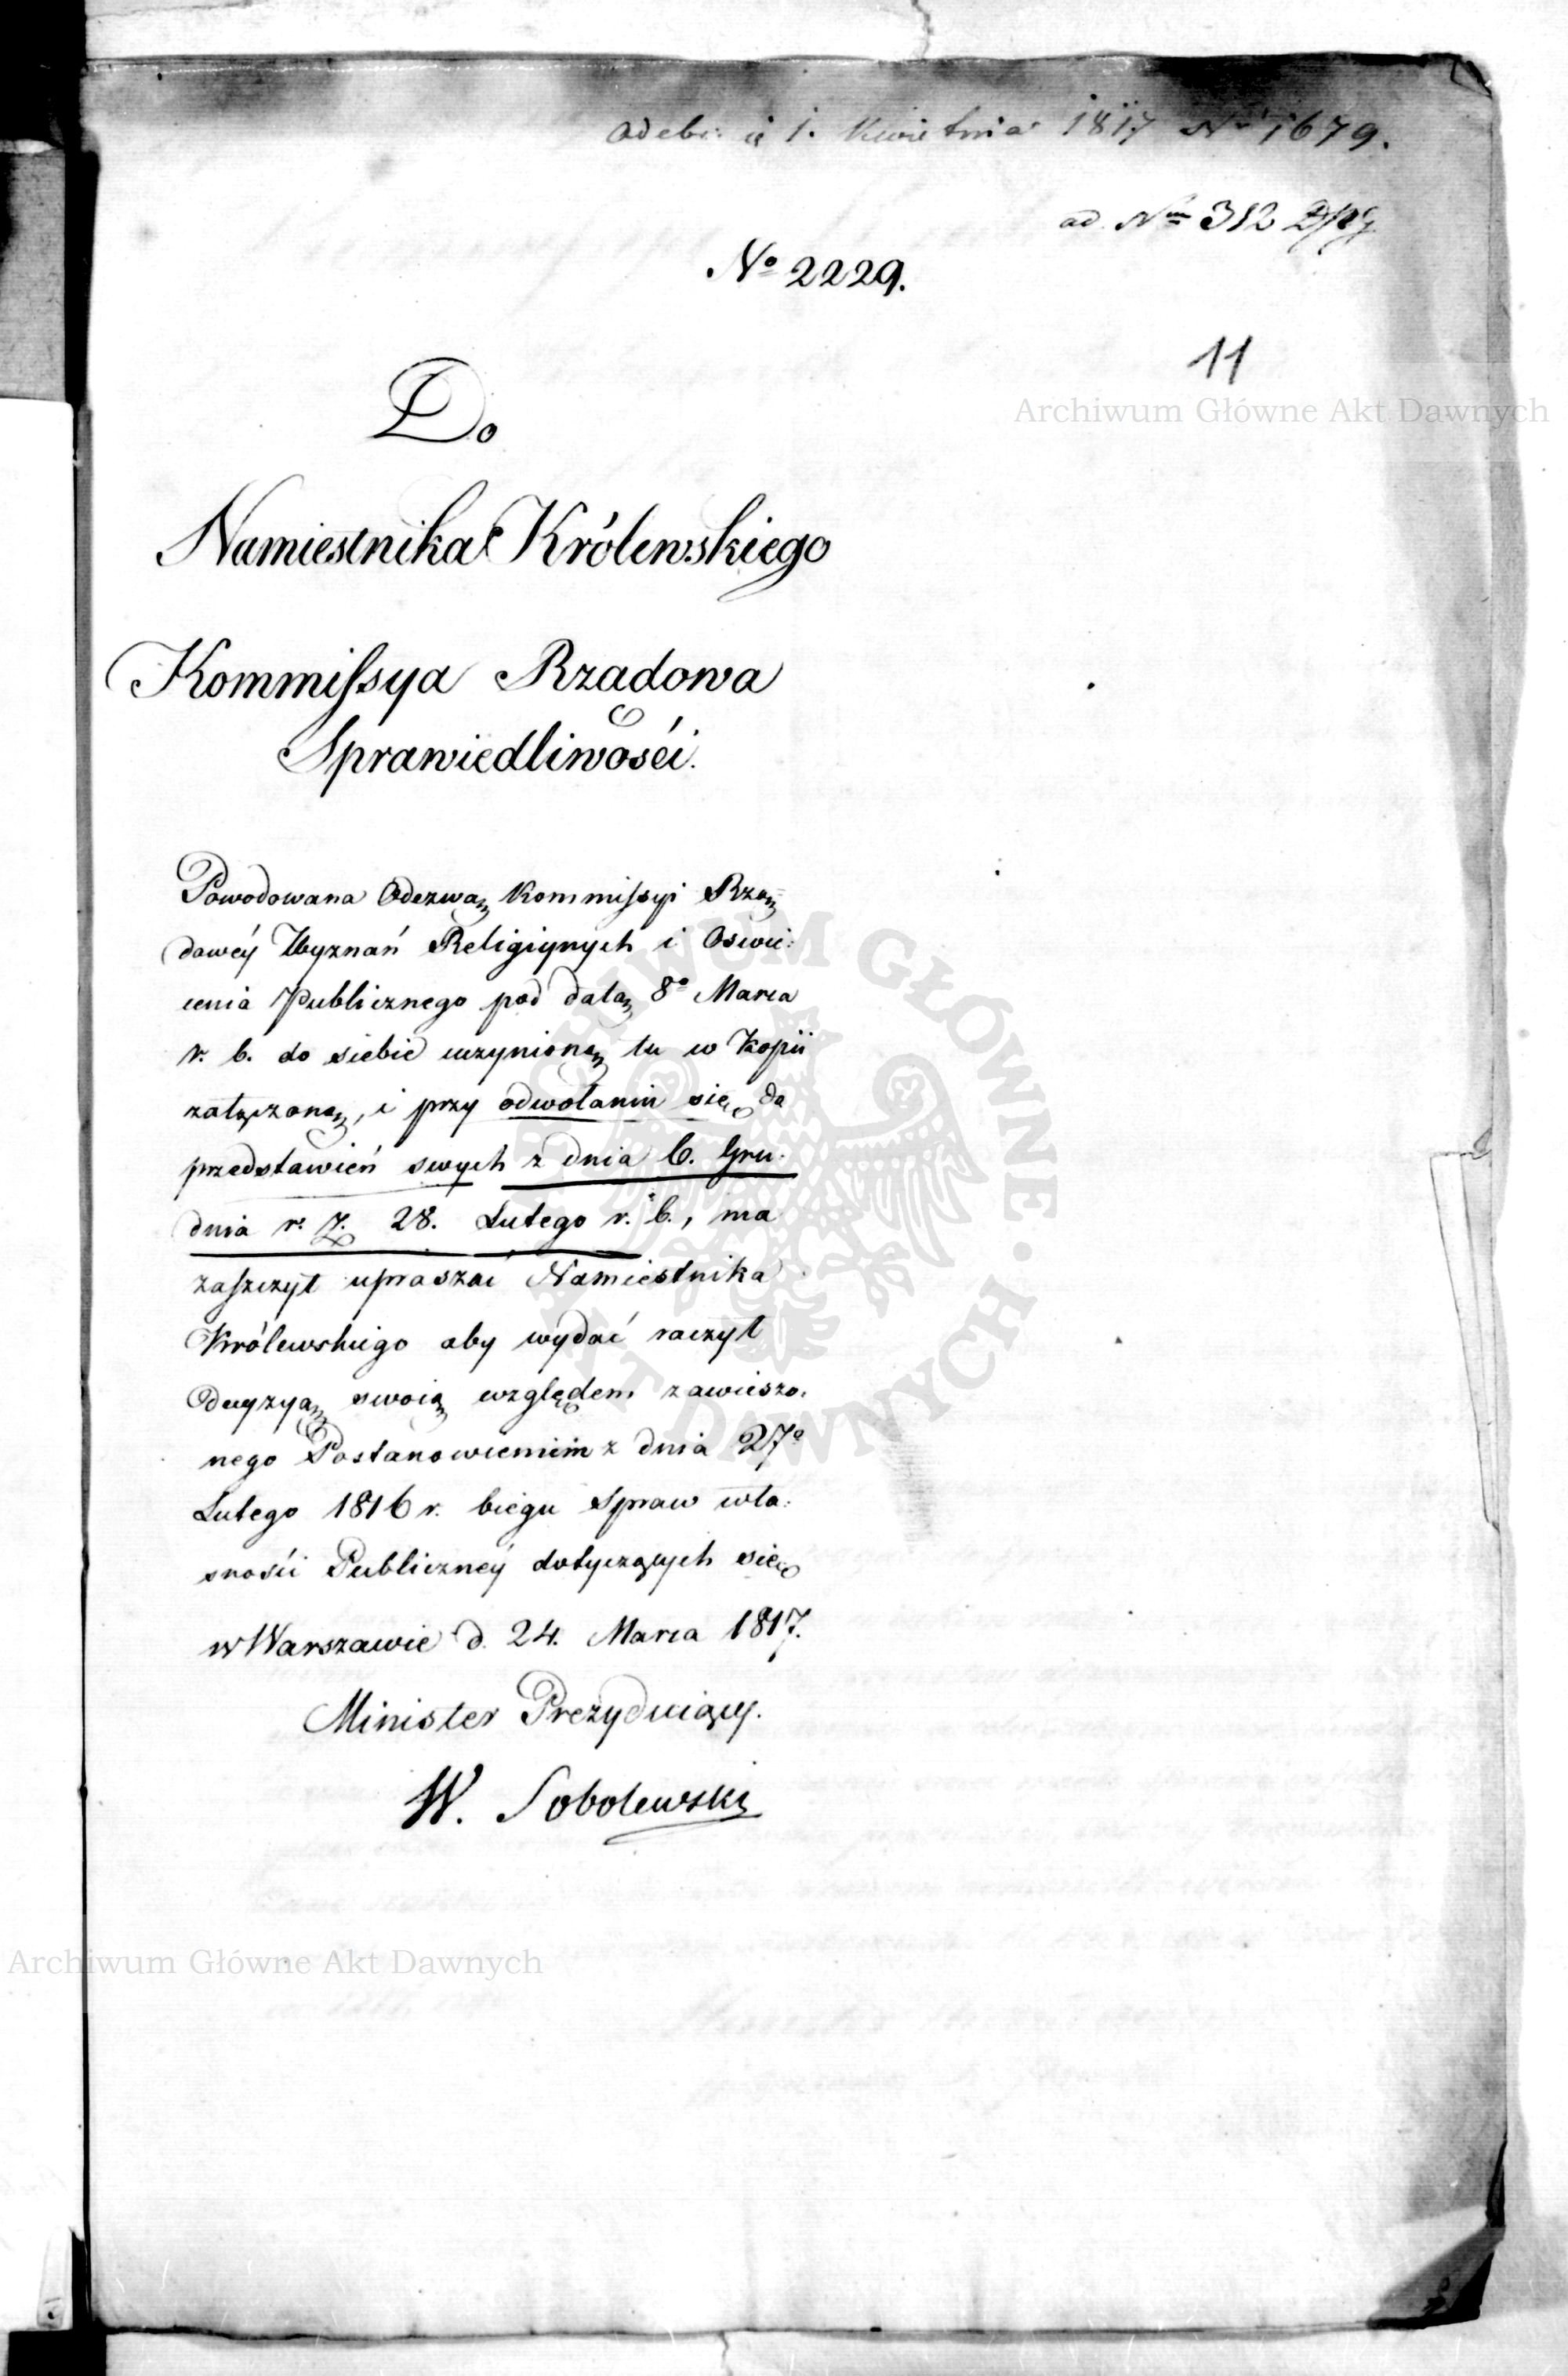 Odebr: d 1. Kwietnia 1817 No 1679.
ad. Num 312
No 2229.
11
Archiwum Główne Akt Dawnych
Do
Namiestnika Królewskiego
Kommissya Rządowa
Sprawiedliwości.
Powodowana Odezwą Kommissyi Rzą=
dowéy Wyznań Religiynych i Oswie:
cenia Publicznego pod datą 8o Marca
r. b. do siebie uczynioną tu w Kopii
załączoną, i przy odwołaniu się do
przedstawień swych z dnia 6. Gru:
dnia r. z. 28. Lutego r. b., ma
zaszczyt upraszać Namiestnika
Królewskiego aby wydać raczył
Decyzyą swoią względem zawieszo:
nego Postanowieniem z dnia 27o
Lutego 1816 r. biegu Spraw wła:
sności Publicznéy dotyczących się
w Warszawie d. 24. Marca 1817.
Minister Prezyduiący.
W. Sobolewski
ARCHIWUM GŁÓWNE • AKT DAWNYCH •
Archiwum Główne Akt Dawnych